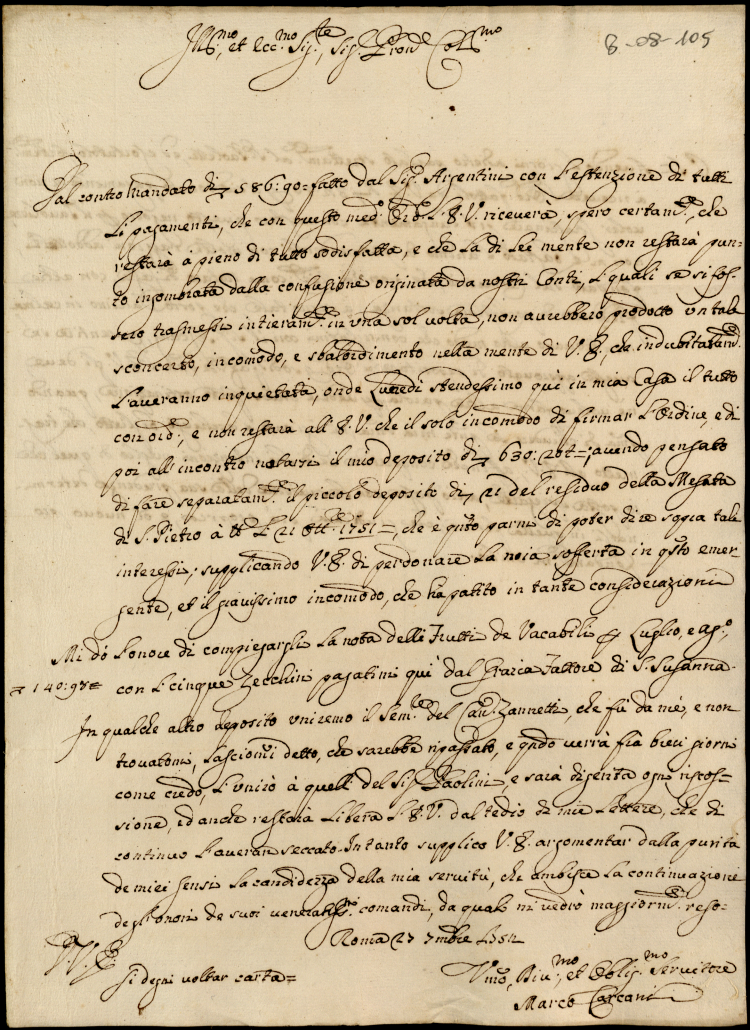 Ill.mo, et Ecc.mo Sig.re, Sig.r Pron.e Col.mo
8-08-105
Dal contro Mandato di 586:90= fatto dal Sig.r Argentini con l'estenzione di tutti
li pagamenti, che con questo med.o Ord.o l'E.V. riceverà, spero certam.e, che
restarà à pieno di tutto sodisfatta, e che la di Lei mente non restarà pun=
to ingombrata dalla confusione originata da nostri Conti, li quali se si fos=
sero trasmessi intieram.e in una sol volta, non avrebbero prodotto un tale
sconcerto, incomodo, e sbalordimento nella mente di V.E., che indubitatam.e
l'averanno inquietata, onde Lunedì stendessimo quì in mia Casa il tutto
con, e non restarà all'E.V. che il solo incomodo di firmar l'Ordine, e di
poi all'incontro notarsi il mio deposito di 630:20; avendo pensato
di fare separatam.e il piccolo deposito di 21 del residuo della Mesata
di S. Pietro à tt.o li 21 Ott.e 1751=, che è q.nto parmi di poter dire sopra tale
interessi; supplicando V.E. di perdonare la noia sofferta in q.sto emer=
gente, et il gravissimo incomodo, che ha patito in tante considerazioni
Mi dò l'onore di compiegargli la nota delli Frutti de Vacabili p Luglio, e Ag.o,
140:98= con li cinque Zecchini pagatimi quì dal Grazia Fattore di S. Susanna.
In qualche altro deposito uniremo il Sem.re del Cav.r Zannetti, che fù da mé, e non
trovatomi, lascionni detto, che sarebbe ripassato, e q.ndo verrà frà brevi giorni
come credo, l'unirò à quelli del Sig.r Paolini, e sarà digerita ogni riscos=
sione, ed anche restarà libera l'E.V. dal tedio di mie Lettere, che di
continuo l'averan seccato. Intanto supplico V.E. argomentar dalla purità
de miei sensi la candidezza della mia servitù, che ambisce la continuazione
degl'onori de suoi veneratiss.mi comandi, da quali mi vedrò maggiorm.e reso=
Roma 27 7mbre 1751
D.V.E.
Si degni voltar carta=
Umo, Div.mo, et Oblig.mo Servitore
Marco Carcani